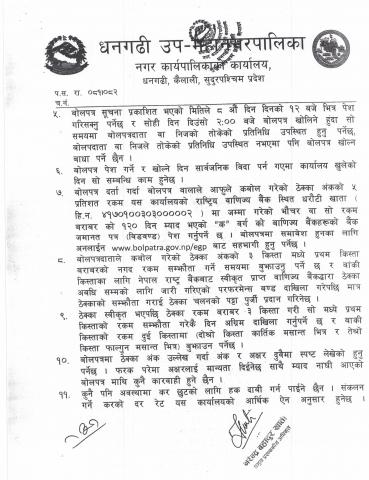 धनगढी उप-महानगरपालिका
नगर कार्यपालिकाको कार्यालय,
धनगढी, कैलाली, सुदुरपश्चिम प्रदेश
प.स. रा. ०८१/०८२
च.नं.
५. बोलपत्र सूचना प्रकाशित भएको मितिले ८ औं दिन दिनको १२ बजे भित्र पेश
गरिसक्नु पर्नेछ र सोही दिन दिउँसो २:०० बजे बोलपत्र खोलिने हुंदा सो
समयमा बोलपत्रदाता वा निजको तोकेको प्रतिनिधि उपस्थित हुनु पर्नेछ,
बोलपदाता वा निजले तोकेको प्रतिनिधि उपस्थित नभएमा पनि बोलपत्र खोल्न
बाधा पर्ने छैन ।
६. बोलपत्र पेश गर्ने र खोल्ने दिन सार्वजनिक विदा पर्न गएमा कार्यालय खुलेको
दिन सो सम्बन्धि काम हुनेछ ।
७. बोलपत्र दर्ता गर्दा बोलपत्र वालाले आफुले कबोल गरेको ठेक्का अंकको ५
प्रतिशत रकम यस कार्यालयको राष्ट्रिय वाणिज्य बैंक स्थित धरौटी खाता (
हि.नं. ४१७०१००३०३००००००२ ) मा जम्मा गरेको भौचर वा सो रकम
बराबर को १२० दिन म्याद भएको "क" वर्ग को बाणिज्य बैंकहरुको बैंक
जमानत पत्र (बिडबण्ड) पेश गर्नुपर्ने छ । बोलपत्रमा समावेश हुनका लागि
अनलाईन www.bolpatra.gov.np/egp बाट सहभागी हुनु पर्नेछ ।
८. बोलपत्रदाताले कबोल गरेको ठेक्का अंकको ३ किस्ता मध्ये प्रथम किस्ता
बराबरको नगद रकम सम्झौता गर्ने समयमा बुझाउनु पर्ने छ र बाकी
किस्ताका लागि नेपाल राष्ट्र बैंकबाट स्वीकृत प्राप्त बाणिज्य बैंकद्वारा ठेक्का
अवधि सम्मको लागि जारी गरिएको परफरमेन्स बण्ड दाखिला गरेपछि मात्र
ठेक्काको सम्झौता गराई ठेक्का चलनको पट्टा पुर्जी प्रदान गरिनेछ ।
९. ठेक्का स्वीकृत भएपछि ठेक्का रकम बराबर ३ किस्ता गरी सो मध्ये प्रथम
किस्ताको रकम सम्झौता गरेकै दिन अग्रिम दाखिला गर्नुपर्ने छ र बाकी
किस्ताको रकम दुई किस्तामा (दोश्रो किस्ता कार्तिक मसान्त भित्र र तेश्रो
किस्ता फाल्गुन मसान्त भित्र) बुझाउन पर्नेछ ।
१०. बोलपत्रमा ठेक्का अंक उल्लेख गर्दा अंक र अक्षर दुबैमा स्पष्ट लेखेको हुनु
पर्नेछ । फरक परेमा अक्षरलाई मान्यता दिईनेछ साथै म्याद नाघी आएको
बोलपत्र माथि कुनै कारबाही हुने छैन ।
११. कुनै पनि अवस्थामा कर छुटको लागि हक दाबी गर्न पाईने छैन । संकलन
गर्ने करको दर रेट यस कार्यालयको आर्थिक ऐन अनुसार हुनेछ ।